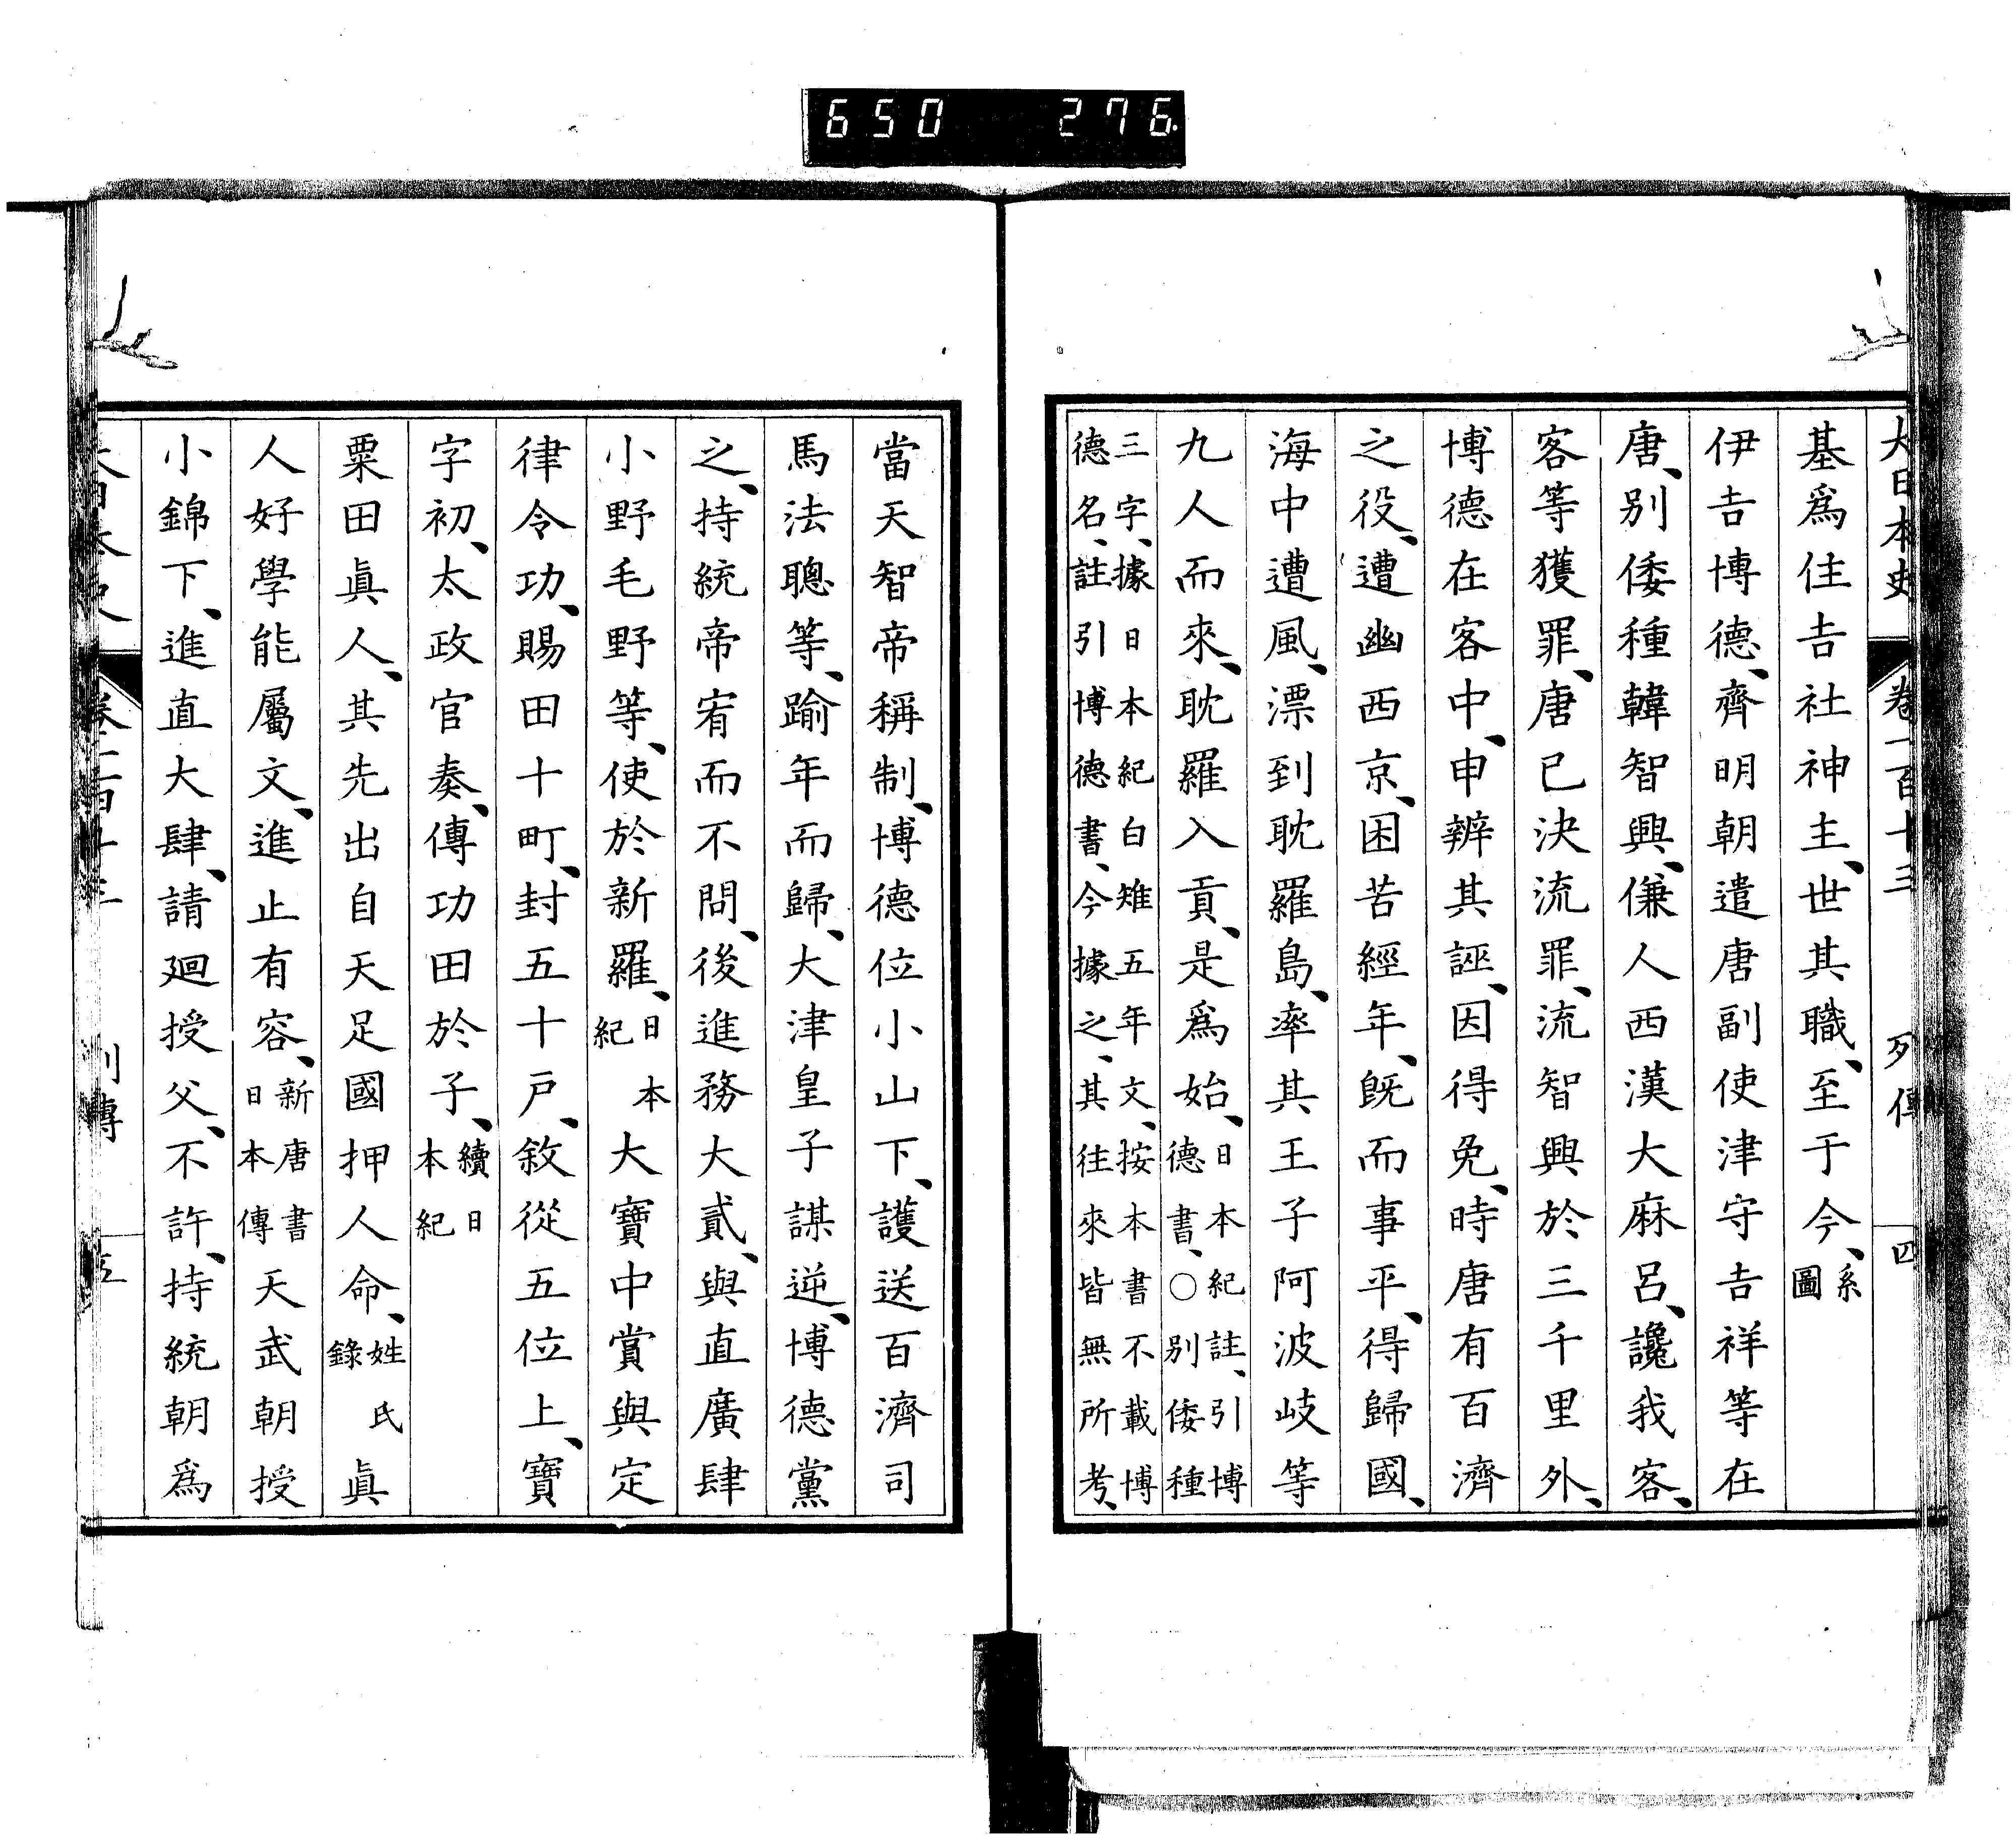 650 276
大日本史 卷一百十三 列傳 四
基爲住吉社神主、世其職、至于今、系圖
伊吉博德、齊明朝遣唐副使津守吉祥等在
唐、別倭種韓智興、傔人西漢大麻呂、讒我客、
客等獲罪、唐已決流罪、流智興於三千里外、
博德在客中、申辨其誣、因得免、時唐有百濟
之役、遭幽西京、困苦經年、既而事平、得歸國、
海中遭風、漂到耽羅島、率其王子阿波岐等
九人而來、耽羅入貢、是爲始、日本紀註、引博德書、○別倭種
三字、據日本紀白雉五年文、按本書不載博德名、註引博德書、今據之、其往來皆無所考、
當天智帝稱制、博德位小山下、護送百濟司
馬法聰等、踰年而歸、大津皇子謀逆、博德黨
之、持統帝宥而不問、後進務大貳、與直廣肆
小野毛野等、使於新羅、日本紀大寶中賞與定
律令功、賜田十町、封五十戶、敘從五位上、寶
字初、太政官奏、傳功田於子、續日本紀
粟田眞人、其先出自天足國押人命、姓氏錄眞
人好學能屬文、進止有容、新唐書日本傳天武朝授
小錦下、進直大肆、請廻授父、不許、持統朝爲
大日本史 卷一百十三 列傳 五